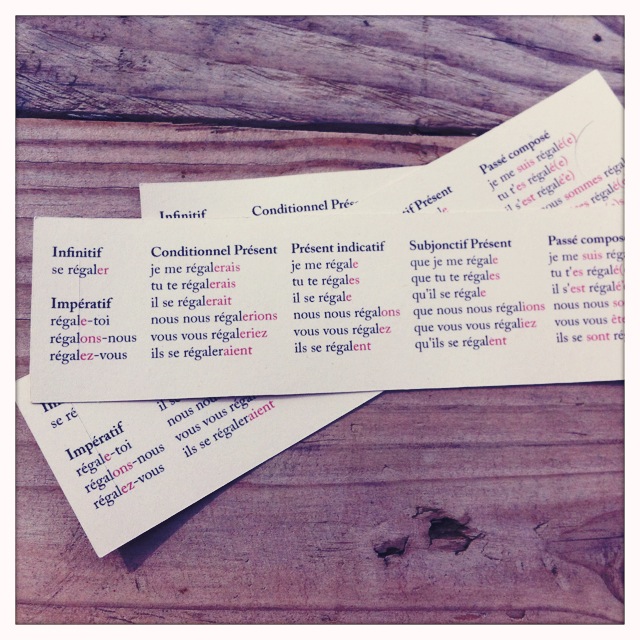 Passé composé
je me suis régalé(e)
tu t'es régalé(e)
il s'est régalé(e)
sommes
Infinitif
Conditionnel
Présent
Infinitif
se régaler
Impératif
régale-toi
régalons-nous
régalez-vous
Conditionnel Présent
je me régalerais
tu te régalerais
il se régalerait
nous nous régalerions
vous vous régaleriez
ils se régaleraient
Présent indicatif
je me régale
tu te régales
il se régale
nous nous régalons
vous vous régalez
ils se régalent
Subjonctif Présent
que je me régale
que tu te régales
qu'il se régale
que nous nous régalions
que vous vous régaliez
qu'ils se régalent
Passé compos
je me suis rég
tu t'es régalé(
il s'est régalé(
nous nous so
vous vous ête
ils se sont ré
se ré
Impératif
régale-toi
régalons-nous
régalez-vous
il se
nous nou
vous vous réga
ils se régaleraient